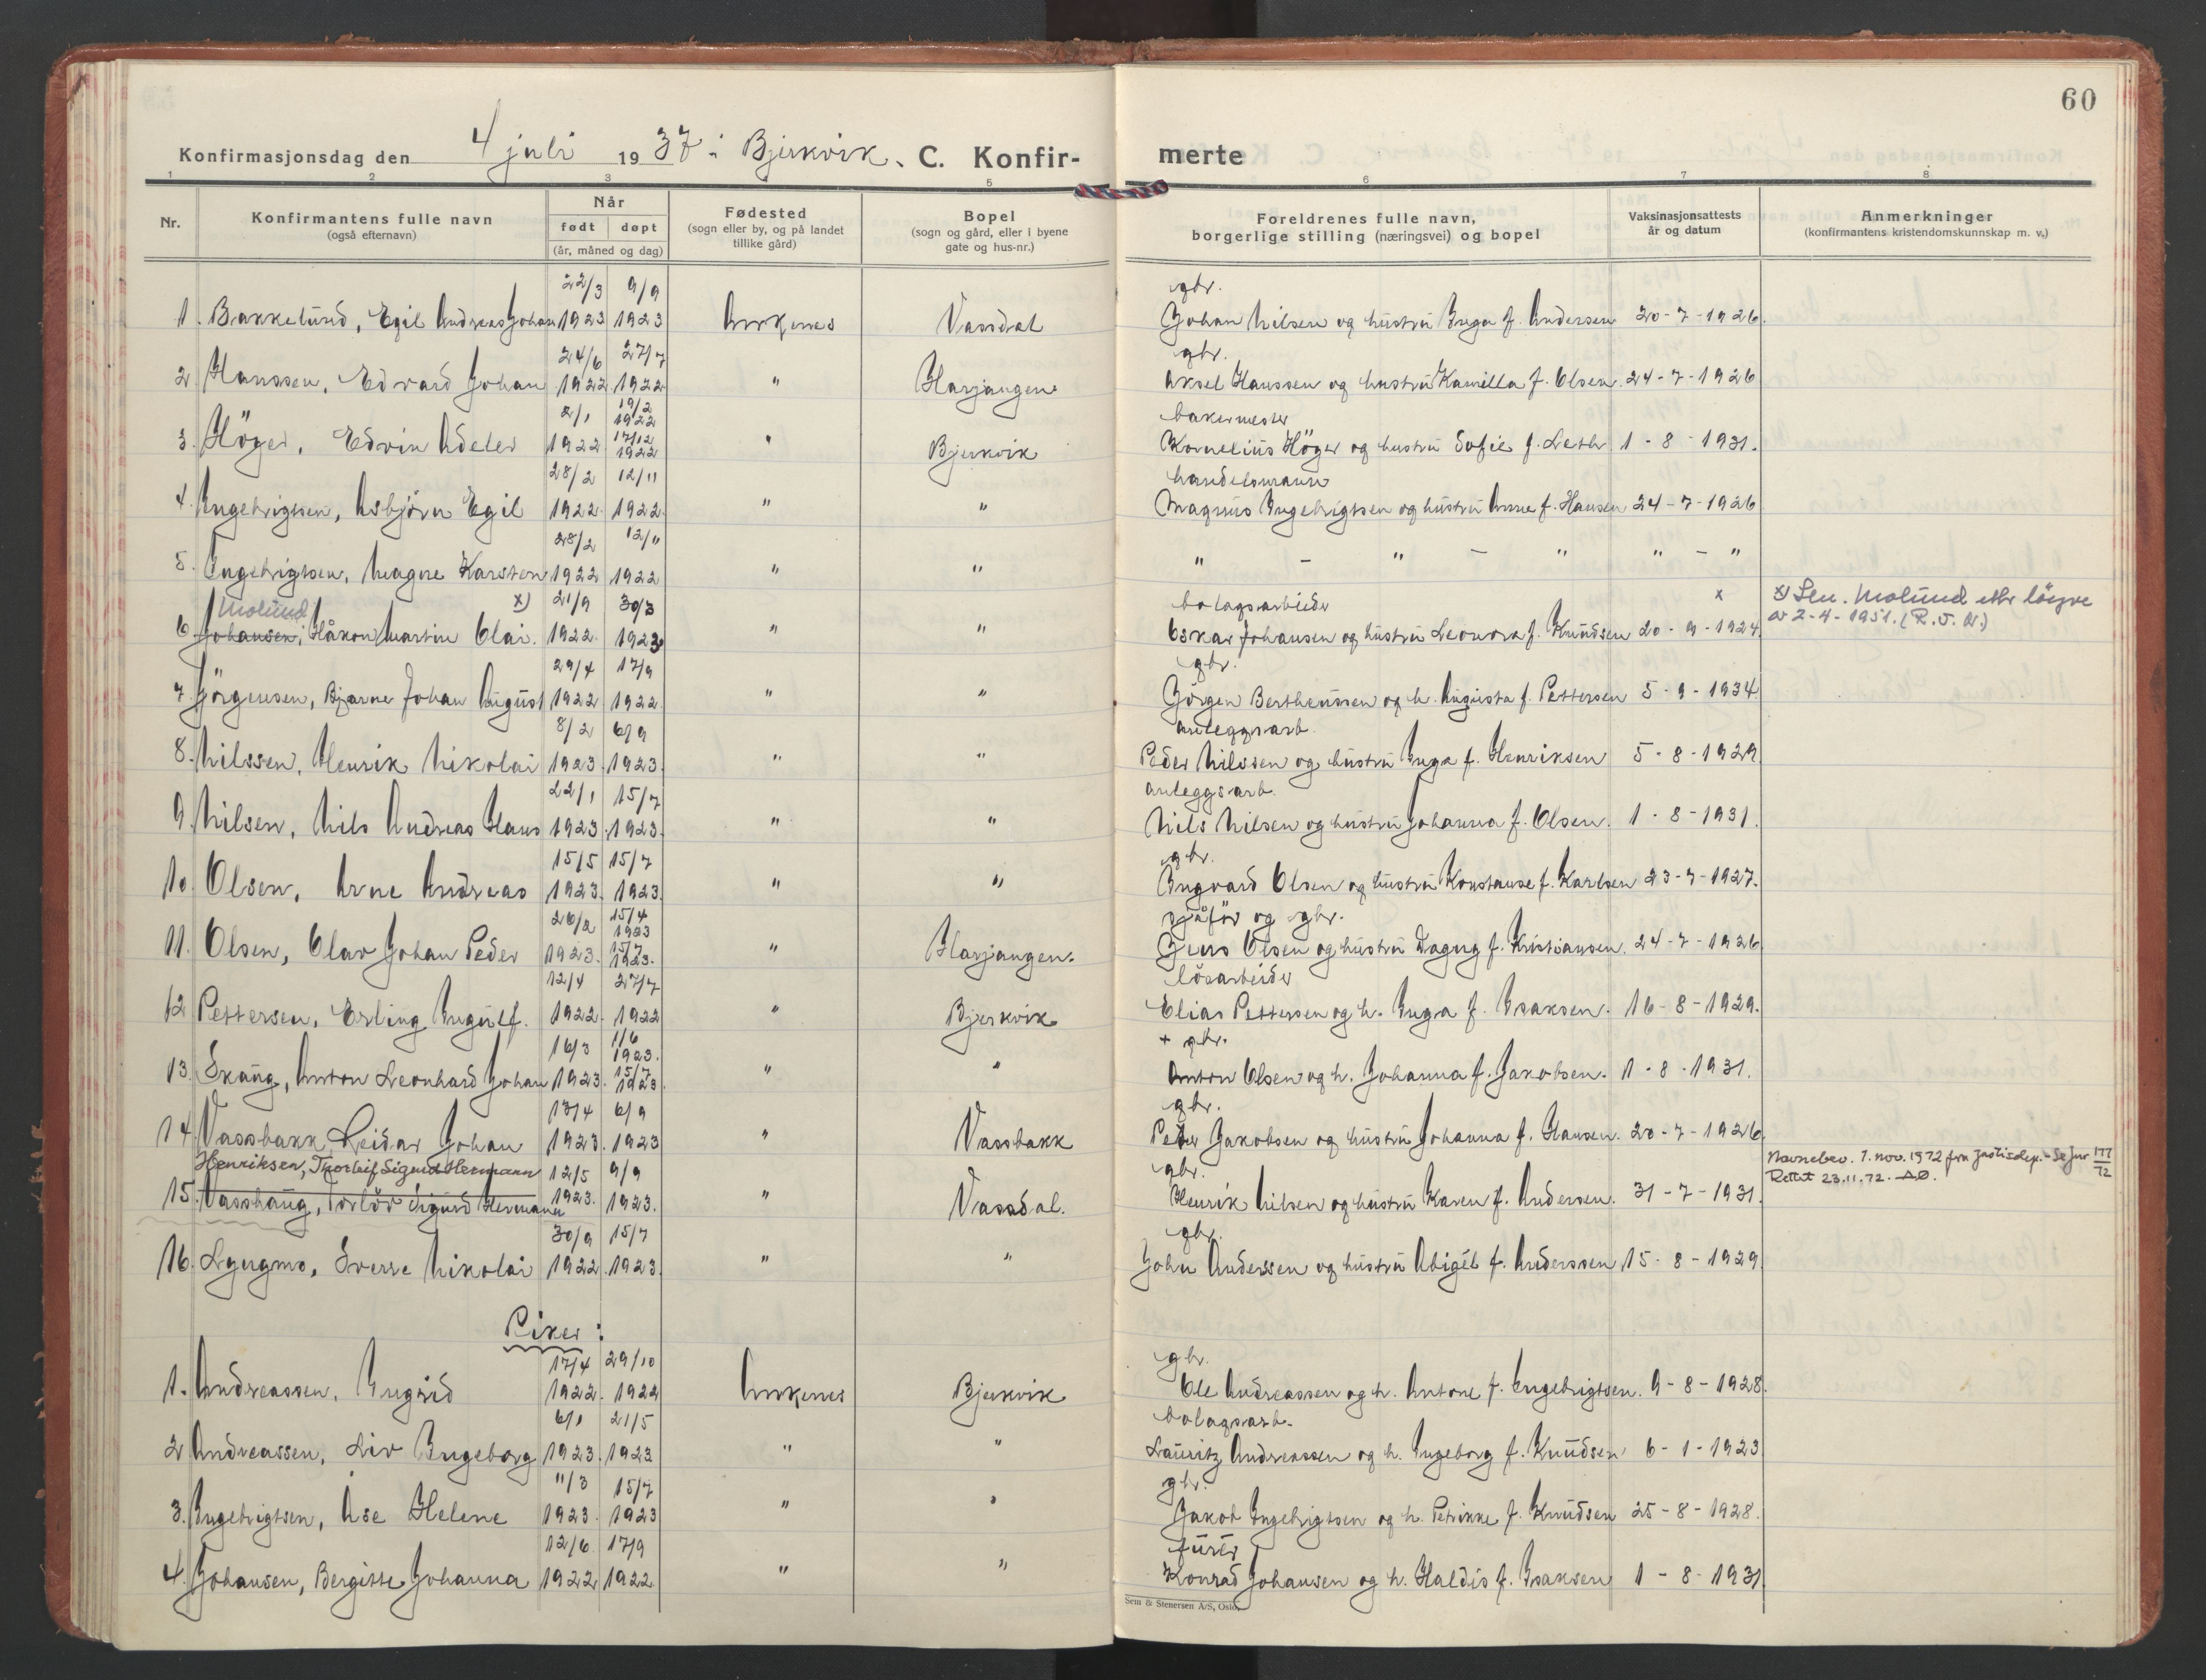 60
Konfirmasjonsdag den 4 juli 1937 i Bjerkvik. C. Konfirmerte
1 2 3 4 5 6 7 8
Nr.
Konfirmantens fulle navn
(også efternavn)
Når
født døpt
(år, måned og dag)
Fødested
(sogn eller by, og på landet
tillike gård)
Bopel
(sogn og gård, eller i byene
gate og hus-nr.)
Foreldrenes fulle navn,
borgerlige stilling (næringsvei) og bopel
Vaksinasjonsattests
år og datum
Anmerkninger
(konfirmantens kristendomskunnskap m. v.)
22/3 9/9 gbr.
1. Bakkelund, Egil Andreas Johan 1923 1923 Ankenes Vassdal Johan Nilsen og hustru Inga f. Andersen 20-7-1926.
24/6 27/7 gbr.
2 Hanssen, Edvard Johan 1922 1922 " Harjangen Aksel Hanssen og hustru Kamilla f. Olsen. 24-7-1926
2/1 19/2 1922 bakermester
3. Höger, Edvin Adeler 1922 17/12 1922 " Bjerkvik Kornelius Höger og hustru Sofie f. Leth 1-8-1931.
28/2 12/11 handelsmann
4. Ingebrigtsen, Asbjörn Egil 1922 1922 " " Magnus Ingebrigtsen og hustru Anne f. Hansen 24-7-1926
28/2 12/11
5. Ingebrigtsen, Magne Karsten 1922 1922 " " " - " - " " - "
Molund x) 21/9 30/3 bolagsarbeider x x) Sen. Molund etter löyve
6. Johansen, Håkon Martin Olai. 1922 1923 " " Oskar Johansen og hustru Leonora f. Knudsen 20-9-1924. av 2-4-1951. (R.J.A.)
29/4 17/9 gbr.
7. Jörgensen, Bjarne Johan August 1922 1922 " " Jörgen Bertheussen og h. Augusta f. Pettersen 5-9-1934.
8/2 6/9 anleggsarb.
8. Nilssen, Henrik Nikolai 1923. 1923. " " Peder Nilssen og hustru Inga f. Henriksen 5-8-1929
22/1 15/7 anleggsarb.
9. Nilsen, Nils Andreas Hans 1923. 1923. " " Nils Nilsen og hustru Johanna f. Olsen. 1-8-1931.
15/5 15/7 gbr.
10 Olsen, Arne Andreas 1923. 1923. " " Ingvard Olsen og hustru Konstanse f. Karlsen 23-7-1927.
26/2 15/4 1923 sjåför og gbr.
11. Olsen, Olav Johan Peder 1923. 15/7 1923. " Harjangen. Jens Olsen og hustru Dagny f. Kristiansen. 24-7-1926.
12/4 27/7 lösarbeider
12 Pettersen, Erling Ingulf. 1922. 1922 " Bjerkvik Elias Pettersen og h. Inga f. Isaksen. 16-8-1929.
16/3 1/6 1923. + gbr.
13. Skaug, Anton Leonhard Johan 1923. 15/7 1923. " " Anton Olsen og h. Johanna f. Jakobsen. 1-8-1931.
13/4 6/9 gbr.
14. Vassbakk, Reidar Johan 1923. 1923 " Vassbakk Peder Jakobsen og hustru Johanna f. Hansen. 20-7-1926.
Henriksen, Thorleif Sigurd Hermann 12/5 9/9 gbr. Navnebev. 1. nov. 1972 fra justisdep. - Se jnr 177/72
15. Vasshaug, Torlöv Sigurd Hermann 1923. 1923. " Vassdal. Henrik Nilsen og hustru Karen f. Andersen. 31-7-1931. Rettet 23.11.72. AØ.
30/9 15/7 gbr.
16. Lyngmo, Sverre Nikolai 1922. 1923. " " John Anderssen og hustru Abigël f. Anderssen 15-8-1929.
Piker:
17/4 29/10 gbr.
1. Andreassen, Ingrid 1922. 1922 Ankenes Bjerkvik Ole Andreassen og h. Antone f. Engebrigtsen. 9-8-1928.
6/1 21/5 bolagsarb.
2 Andreassen, Liv Ingeborg 1923. 1923 " " Lauritz Andreassen og h. Ingeborg f. Knudsen 6-1-1923
11/3 15/7 gbr.
3. Ingebrigtsen, Åse Helene 1923. 1923 " " Jakob Ingebrigtsen og h. Petrikke f. Knudsen 25-8-1928.
12/6 17/9
4. Johansen, Bergitte Johanna 1922 1922. " " Konrad Johansen og h. Haldis f. Isaksen 1-8-1931.
Sem & Stenersen A/S, Oslo.